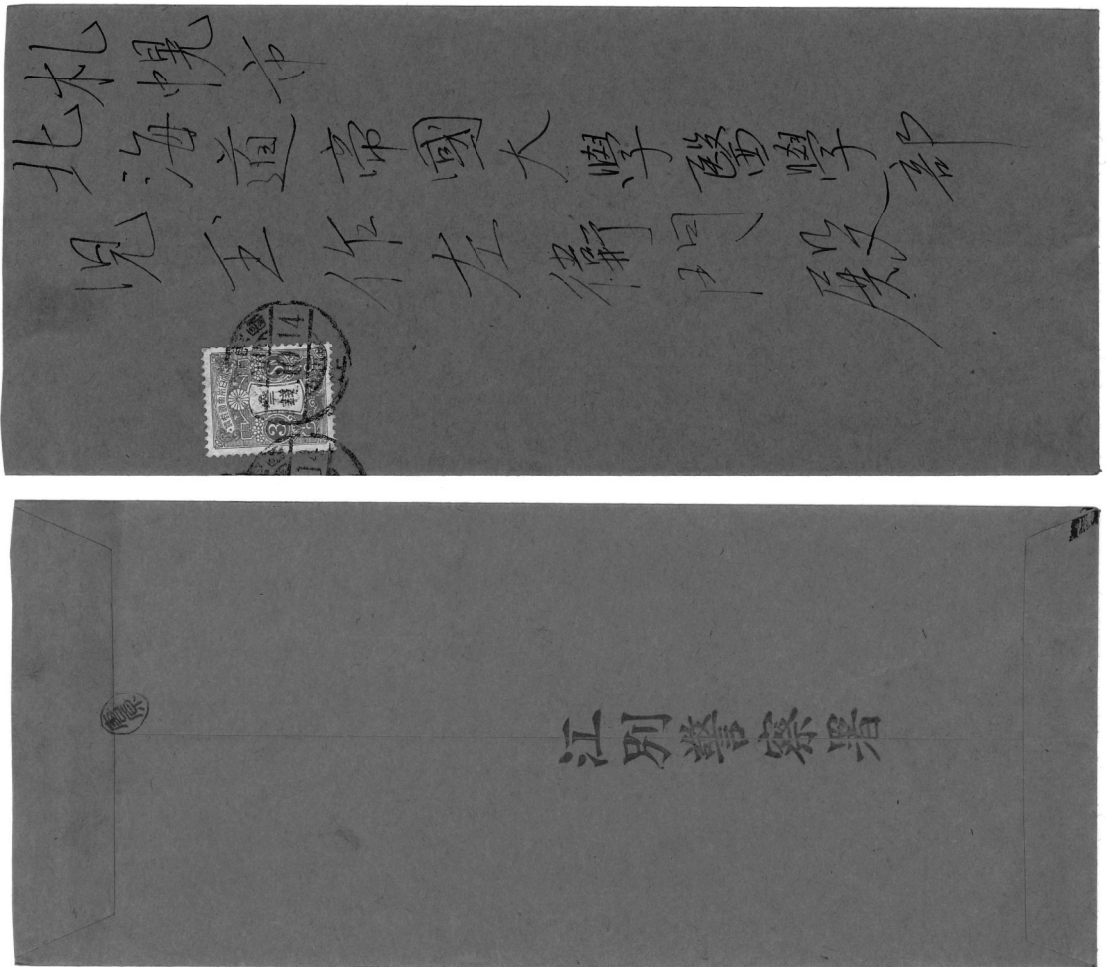 札幌市
北海道帝國大學醫學部
児玉作左衛門殿
三錢
3
14
江別警察署